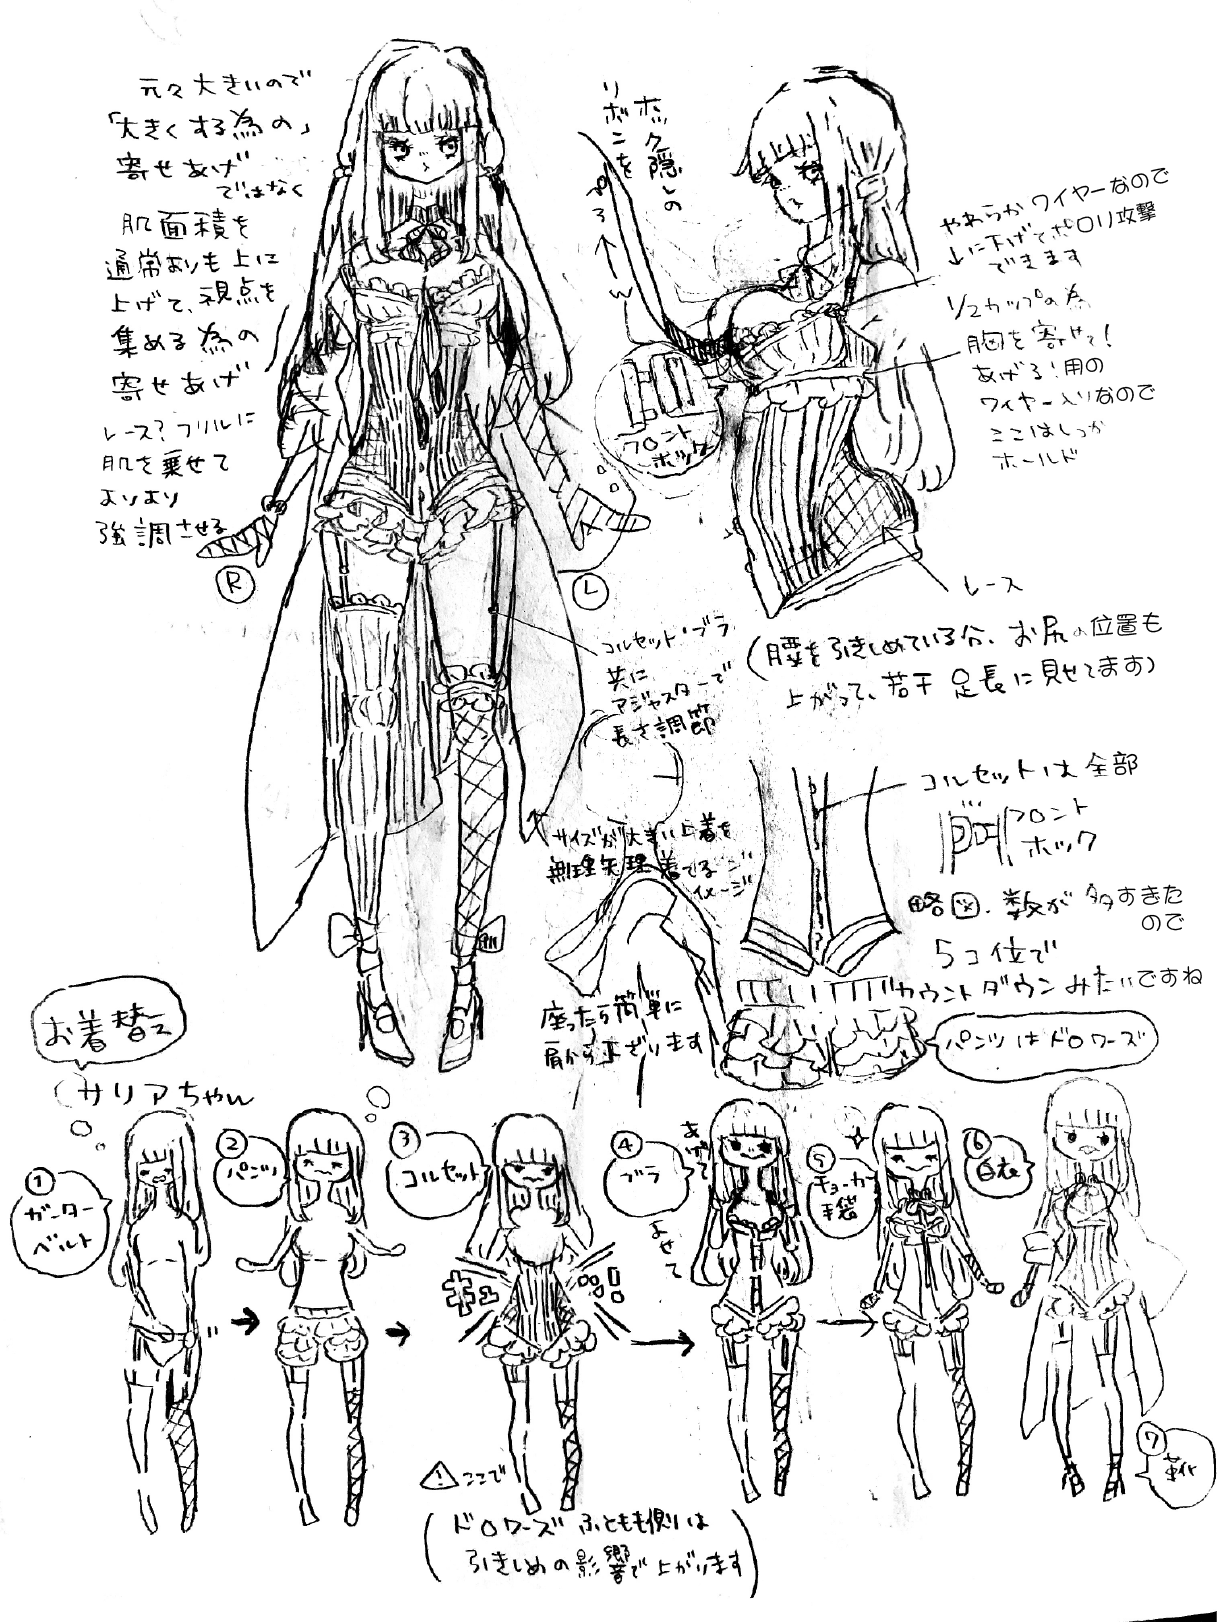 元々大きいので
「大きくする為の」
寄せあげ
ではなく
肌面積を
通常よりも上に
上げて、視点を
集める為の
寄せあげ
レース？フリルに
肌を乗せて
よりより
強調させる
R
L
ホック隠しの
リボンを
フロント
ホック
やわらかワイヤーなので
↓に下げてポロリ攻撃
できます
1/2カップの為
胸を寄せて！
あげる！用の
ワイヤー入りなので
ここはしっか
ホールド
レース
(腰を引きしめている分、お尻の位置も
上がって、若干足長に見せてます)
コルセット・ブラ
共に
アジャスターで
長さ調節
サイズが大きい上着を
無理矢理着てる
イメージ
座ったら簡単に
肩から下ざります
コルセットは全部
フロント
ホック
略図、数が多すぎた
ので
5コ位で
カウントダウンみたいですね
パンツはドロワーズ
お着替え
サリアちゃん
① ガーター
ベルト
② パンツ
③ コルセット
ギュ
④ ブラ
あげて
よせて
⑤ チョーカー
手袋
⑥ 白衣
⑦ 靴
ここで
(ドロワーズふともも側は
引きしめの影響で上がります)